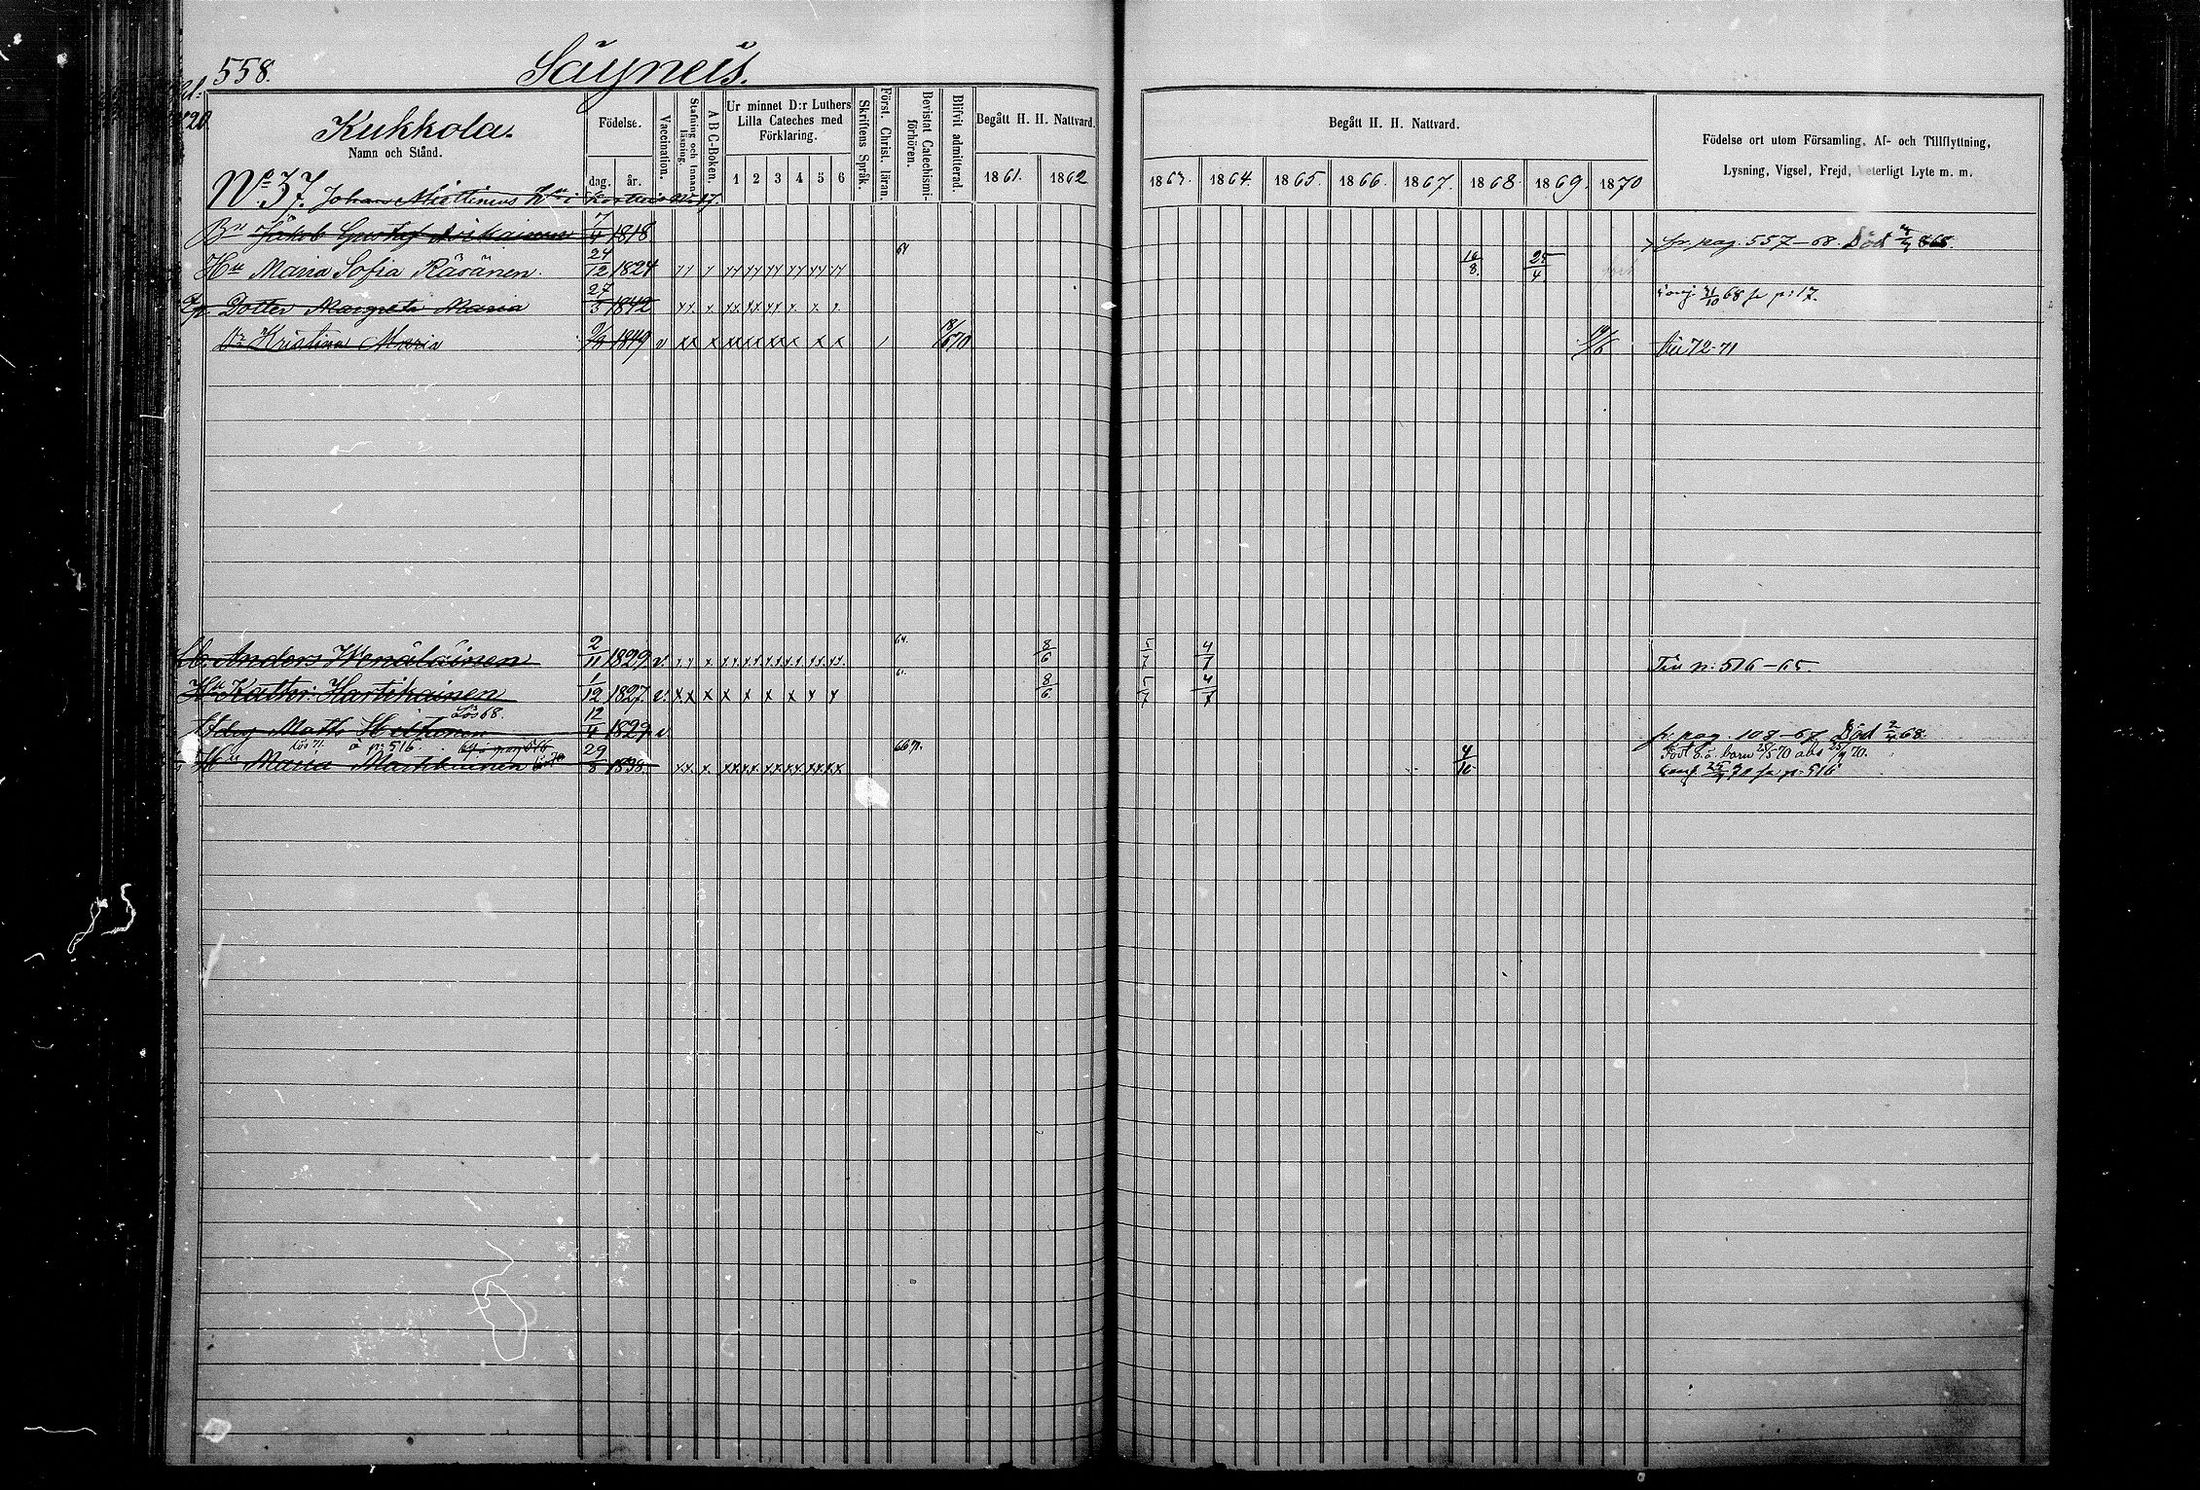 558. Säyneis.
Kukkola.
Namn och Stånd.
Födelse.
dag. år.
Vaccination.
Stafning och Innanläsning.
A B C-Boken.
Ur minnet D:r Luthers Lilla Cateches med Förklaring.
1 2 3 4 5 6
Skriftens Språk.
Först. Christ. läran.
Bevistat Catechismi-förhören.
Blifvit admitterad.
Begått H. H. Nattvard.
1861. 1862
Begått H. H. Nattvard.
1863. 1864. 1865. 1866. 1867. 1868. 1869. 1870
Födelse ort utom Församling, Af- och Tillflyttning,
Lysning, Vigsel, Frejd, Veterligt Lyte m. m.
No 37. Johan Miettinens
Jakob Gustaf 7/4 1818 fr pag. 557-68. Död
Hu Maria Sofia Räsänen. 24/12 1824 16/8 25/4
Dotter Margreta Maria 27/3 1842 68 fr p: 17.
Dr Kristina Maria 1849 v 19/6 72-71
Anders Wenäläinen 2/11 1829 v. 64. 8/6 5/7 4/7 n: 516-65.
Hu Kathr: Hartikainen 1/12 1827 v. 61. 8/6 5/7 4/7
Matts 68. 12/4 1829 v fr. pag. 108-67 Död 68.
Hu Maria Martikainen 29/8 1838. 4/10 fr: p: 516